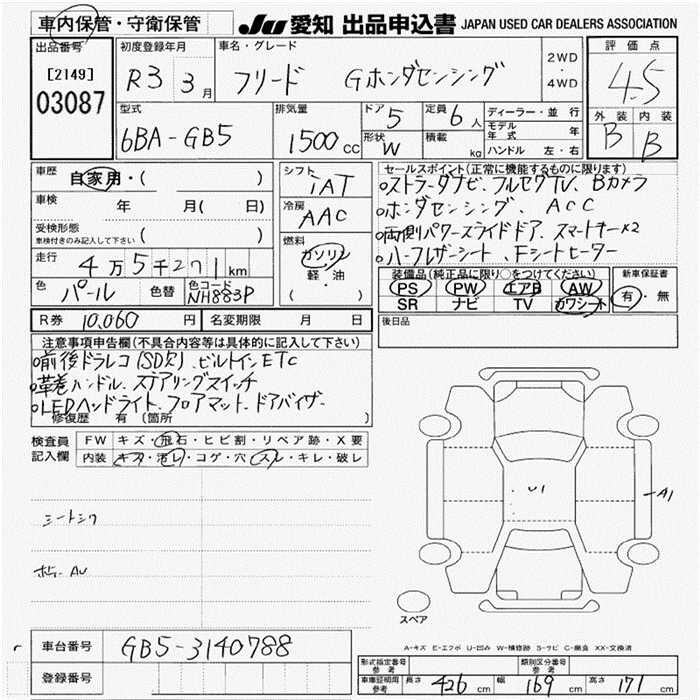 車内保管・守衛保管 JU 愛知 出品申込書 JAPAN USED CAR DEALERS ASSOCIATION
出品番号 初度登録年月 車名・グレード 評価点
[2149] R3 3月 フリード Gホンダセンシング 2WD・4WD 4.5
03087
型式 排気量 ドア 5 定員 6人 ディーラー・並行 外装 内装
6BA-GB5 1500cc 形状 W 積載 kg モデル年式 年 B B
ハンドル 左・右
車歴 自家用・( ) シフト iAT
セールスポイント(正常に機能するものに限ります)
。ストラーダナビ、フルセグTV、Bカメラ
車検 年 月( 日) 冷房 AAC
。ホンダセンシング、ACC
受検形態 ( )
車検付きのみ記入して下さい
。両側パワースライドドア、スマートキー×2
走行 4万5千271km 燃料 ガソリン・軽・油 ( )
。ハーフレザーシート、Fシートヒーター
色 パール 色替 色コード NH883P
装備品(純正品に限り○をつけてください) 新車保証書
PS PW エアB AW 有・無
SR ナビ TV カワシート
R券 10,060円 名変期限 月 日
後日品
注意事項申告欄(不具合内容等は具体的に記入して下さい)
。前後ドラレコ(SD欠)、ビルトインETC
。革巻ハンドル、ステアリングスイッチ
。LEDヘッドライト、フロアマット、ドアバイザー
修復歴 有(箇所 )
検査員記入欄 FW キズ・飛石・ヒビ割・リペア跡・X要
内装 キズ・汚レ・コゲ・穴・スレ・キレ・破レ
U1 A1
シートシワ
スペア
車台番号 GB5-3140788
A-キズ E-エクボ U-凹み W-補修跡 S-サビ C-腐食 XX-交換済
登録番号
型式指定番号 参考 類別区分番号 参考
車庫証明用 参考 長さ 426cm 幅 169cm 高さ 171cm